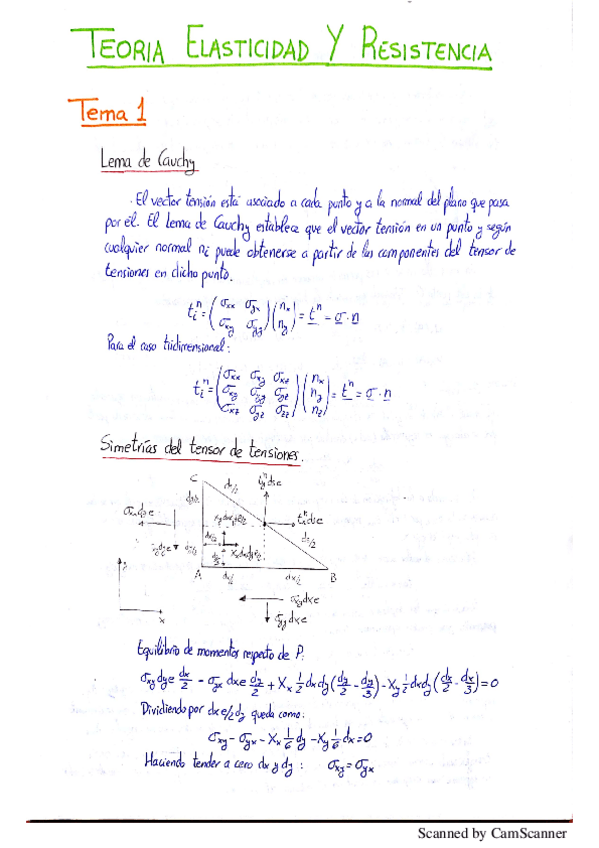 TEORIA ELASTICIDAD Y RESISTENCIA
Tema 1
Lema de Cauchy
· El vector tensión está asociado a cada punto y a la normal del plano que pasa
por él. El Lema de Cauchy establece que el vector tensión en un punto y según
cualquier normal ni puede obtenerse a partir de las componentes del tensor de
tensiones en dicho punto.
tᵢⁿ = (σxx σyx / σxy σyy)(nx / ny) = tⁿ = σ · n
Para el caso tridimensional:
tᵢⁿ = (σxx σxy σxz / σxy σyy σyz / σxz σyz σzz)(nx / ny / nz) = tⁿ = σ · n
Simetrías del tensor de tensiones.
C ds/2
dy/2
txⁿdse
ds/2
dx/3
y
A dx/2 dx/2 B
x
σyydxe
Equilibrio de momentos respecto de P:
σxy dye dx/2 - σyx dxe dy/2 + Xx 1/2 dxdy (dy/2 - dy/3) - Xy 1/2 dxdy (dx/2 - dx/3) = 0
Dividiendo por dxe/2dy queda como:
σxy - σyx - Xx 1/6 dy - Xy 1/6 dx = 0
Haciendo tender a cero dx y dy : σxy = σyx
Scanned by CamScanner